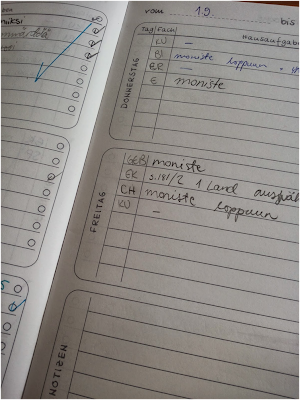 miksi
vom 19 bis
Tag Fach Hausaufgab
DONNERSTAG
KU –
moniste loppuun
–
E moniste
FREITAG
GEB moniste
EK s.181/2 1 Land
CH moniste loppuun
KU –
NOTIZEN